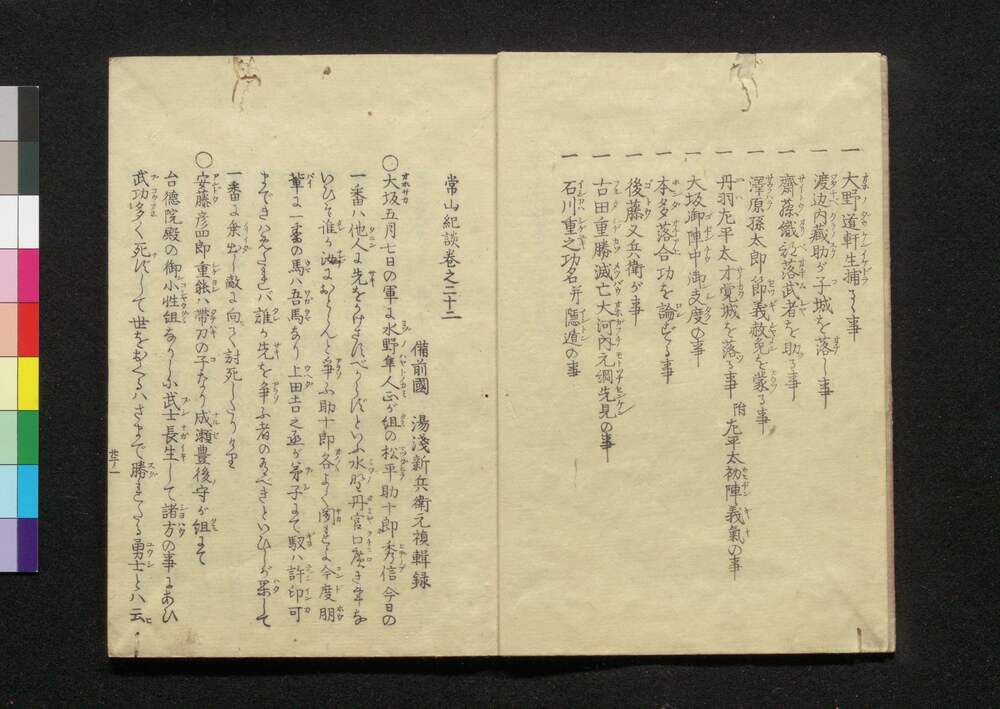 一 大野道軒生捕るゝ事
一 渡辺内藏助が子城を落し事
一 齋藤織部落武者を助る事
一 澤原孫太郎節義赦免を蒙る事
一 丹羽左平太才覚城を落る事 附 左平太初陣義氣の事
一 大坂御陣中御支度の事
一 本多落合功を論ずる事
一 後藤又兵衛が事
一 古田重勝滅亡大河内元綱先見の事
一 石川重之功名并隱遁の事
常山紀談巻之二十二
備前國 湯淺新兵衛元禎輯録
○大坂五月七日の軍に水野隼人正が組の松平助十郎秀信今日の
一番ハ他人に先をかけさすべからずといふ水野丹宮口廣き事な
いひそ誰か汝におとらんと爭ふ助十郎各よく聞れよ今度朋
輩に一番の馬ハ吾馬なり上田吉之丞が弟子にて馭ハ許印可
までハ誰か先を爭ふ者のあるべきといひしが果して
一番に乗出し敵に向て討死したりけり
○安藤彦四郎重能ハ帯刀の子なり成瀬豊後守が組にて
台德院殿の御小性組なりしふ武士長生して諸方の事にあひ
武功多く死ずして世をおくるハさまで勝れたる勇士とハ云
廿二ノ一